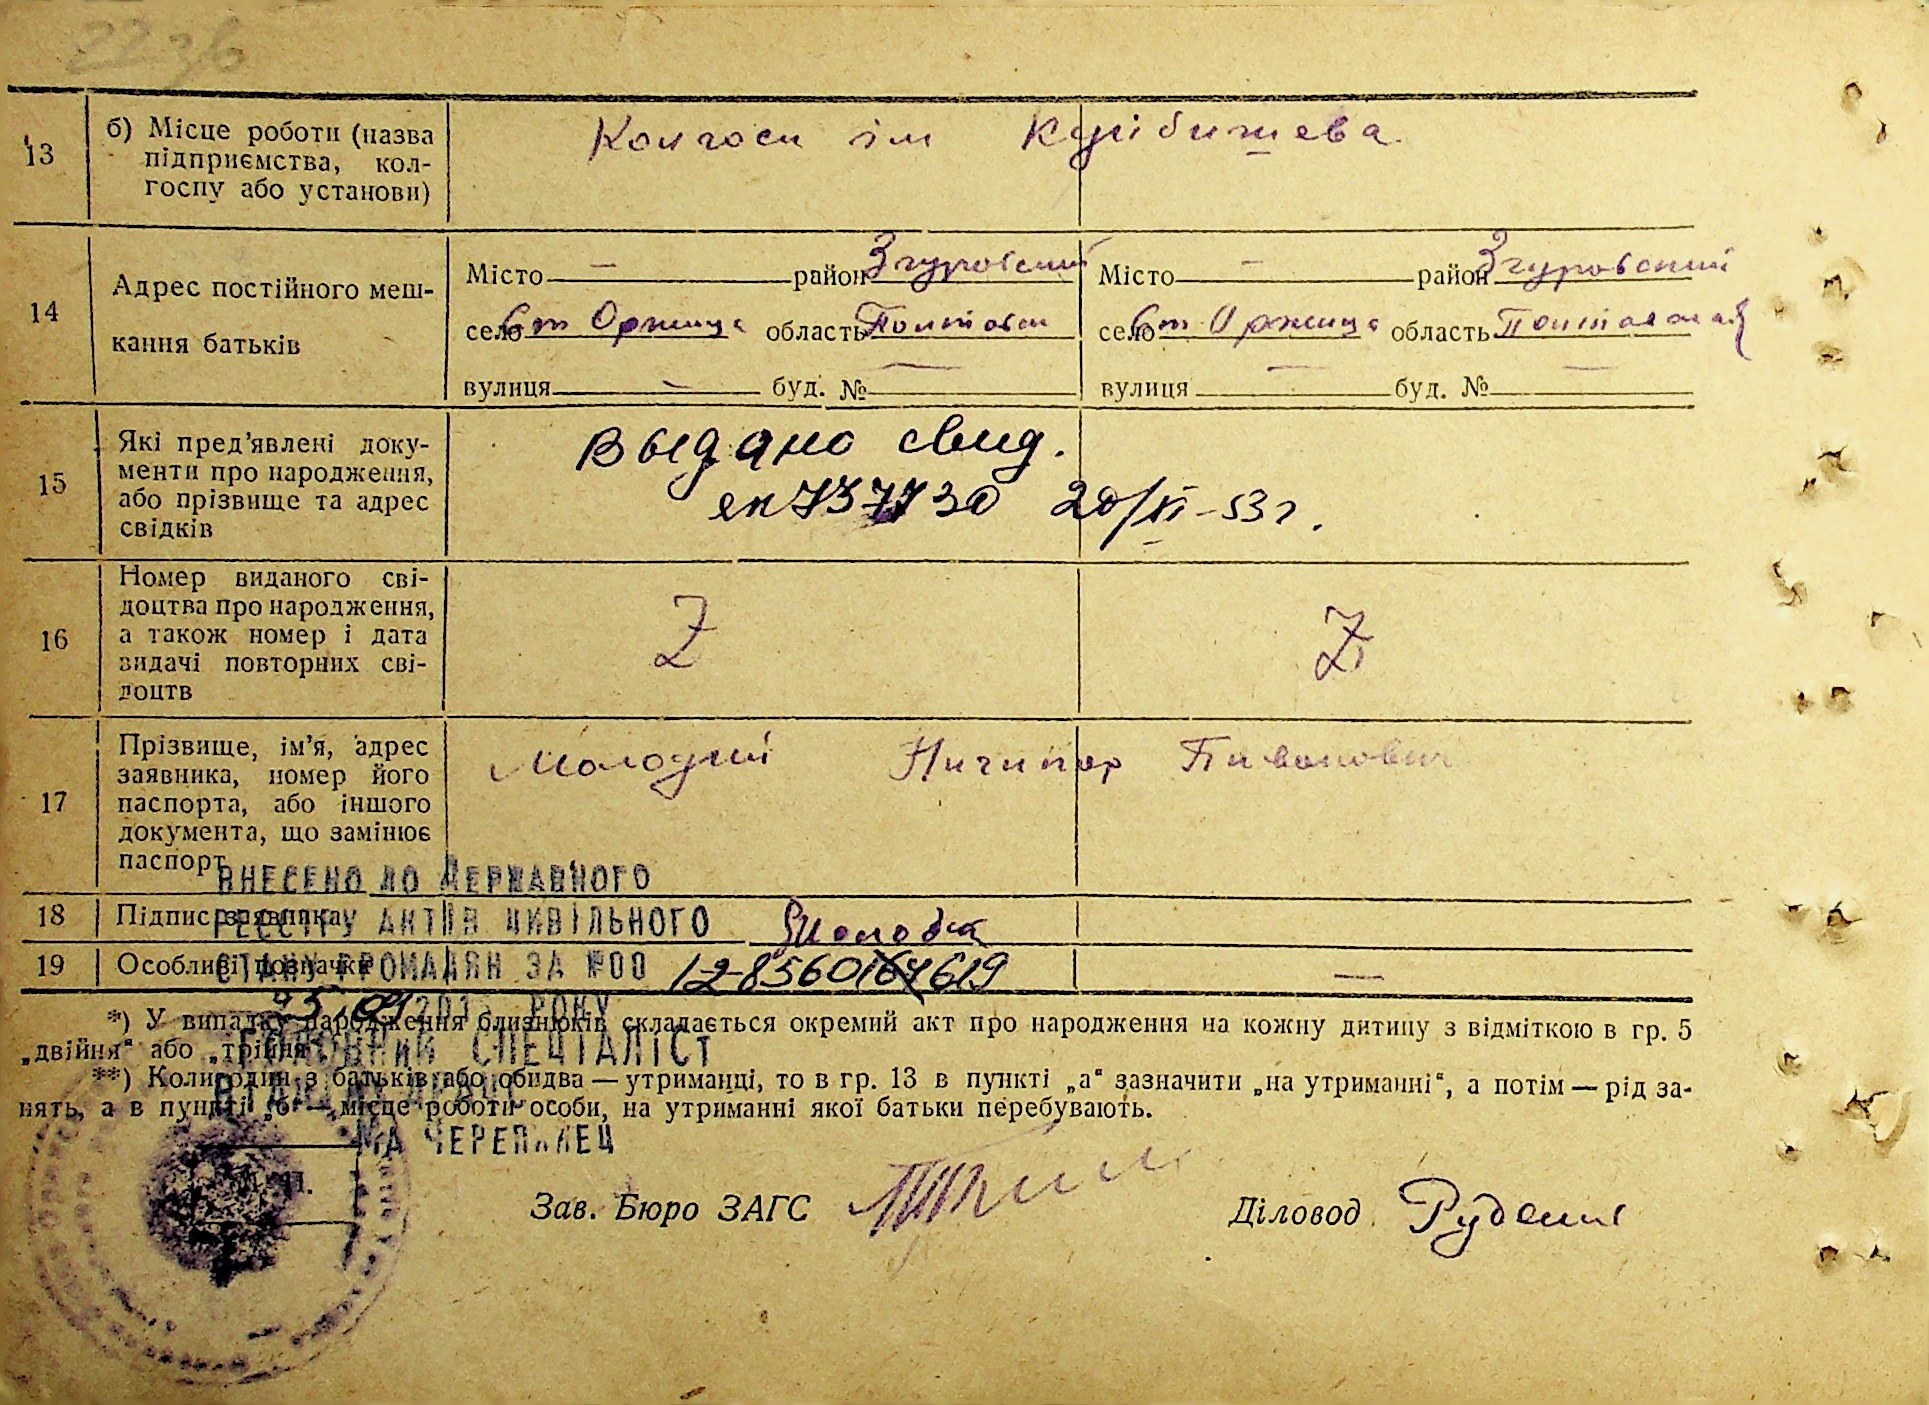 2236
13 б) Місце роботи (назва Колгосп ім Куйбишева
підприємства, кол-
госпу або установи)
14 Адрес постійного меш-
кання батьків
Місто — район Згуровский Місто — район Згуровский
село ст Оржица область Полтавск село ст Оржица область Полтавская
вулиця — буд. № — вулиця — буд. № —
15 Які пред'явлені доку-
менти про народження,
або прізвище та адрес
свідків
Выдано свид.
737730 20/XI-53 г.
16 Номер виданого сві-
доцтва про народження,
а також номер і дата
видачі повторних сві-
доцтв
Z Z
17 Прізвище, ім'я, адрес
заявника, номер його
паспорта, або іншого
документа, що замінює
паспорт
Молодий Ничипор
ВНЕСЕНО ДО ДЕРЖАВНОГО
18 Підпис заявника
РЕЄСТРУ АКТІВ ЦИВІЛЬНОГО
19 Особливі позначки —
СТАНУ ГРОМАДЯН ЗА №00
РОКУ
*) У випадку народження близнюків складається окремий акт про народження на кожну дитину з відміткою в гр. 5
„двійня“ або „трійня“
ГОЛОВНИЙ СПЕЦІАЛІСТ
**) Коли один з батьків або обидва — утриманці, то в гр. 13 в пункті „а“ зазначити „на утриманні“, а потім — рід за-
нять, а в пункті „б“ — місце роботи особи, на утриманні якої батьки перебувають.
М. П.
Зав. Бюро ЗАГС Діловод